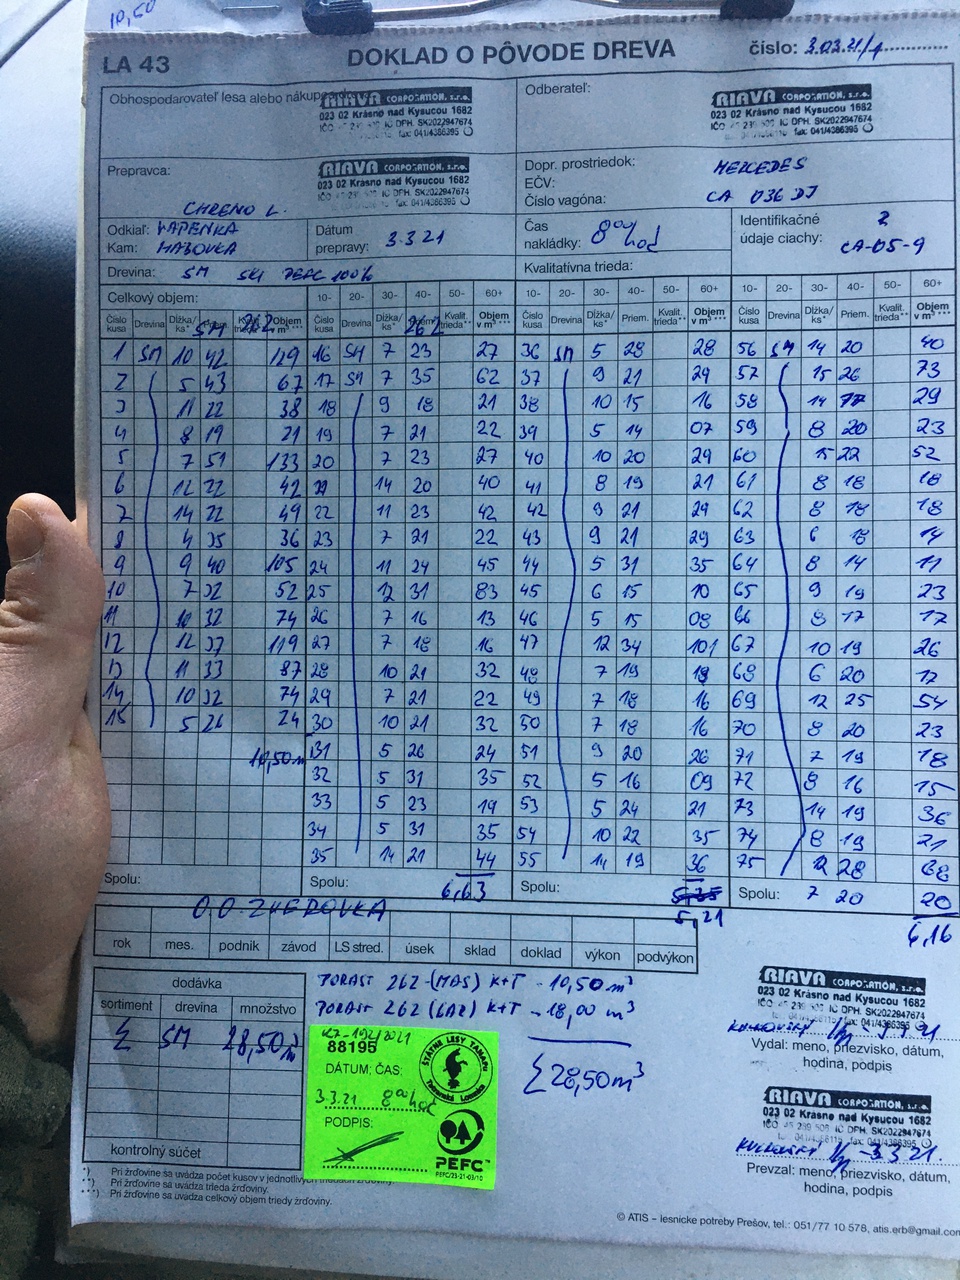 10,50
LA 43 DOKLAD O PÔVODE DREVA číslo: 3.03.21/1
Obhospodarovateľ lesa alebo nákupca dreva:
RIAVA CORPORATION, s.r.o.
023 02 Krásno nad Kysucou 1682
IČO 45 239 509 IČ DPH. SK2022947674
fax: 041/4386395
Odberateľ:
RIAVA CORPORATION, s.r.o.
023 02 Krásno nad Kysucou 1682
IČO 45 239 509 IČ DPH. SK2022947674
fax: 041/4386395
Prepravca:
RIAVA CORPORATION, s.r.o.
023 02 Krásno nad Kysucou 1682
IČO 45 239 509 IČ DPH. SK2022947674
fax: 041/4386395
CHRENO L.
Dopr. prostriedok: MERCEDES
EČV:
Číslo vagóna: CA 036 DJ
Odkiaľ: VAPENKA
Kam: HABOVKA
Dátum prepravy: 3.3.21
Čas nakládky: 8 00 hod
Identifikačné údaje ciachy: 2 CA-05-9
Drevina: SM SKI PEFC 100%
Kvalitatívna trieda:
Celkový objem: 10- 20- 30- 40- 50- 60+ 10- 20- 30- 40- 50- 60+ 10- 20- 30- 40- 50- 60+
Číslo kusa Drevina Dĺžka/ks* Kvalit. trieda** Objem v m³*** Číslo kusa Drevina Dĺžka/ks* Kvalit. trieda** Objem v m³*** Číslo kusa Drevina Dĺžka/ks* Priem. Kvalit. trieda** Objem v m³*** Číslo kusa Drevina Dĺžka/ks* Priem. Kvalit. trieda** Objem v m³***
SM 262 262
1 SM 10 42 129 16 SM 7 23 27 36 SM 5 28 28 56 SM 14 20 40
2 5 43 67 17 SM 7 35 62 37 9 21 29 57 15 26 73
3 11 22 38 18 9 18 21 38 10 15 16 58 14 29
4 8 19 21 19 7 21 22 39 5 14 07 59 8 20 23
5 7 51 133 20 7 23 27 40 10 20 29 60 15 22 52
6 12 22 42 21 14 20 40 41 8 19 21 61 8 18 18
7 14 22 49 22 11 23 42 42 9 21 29 62 8 18 18
8 4 35 36 23 7 21 22 43 9 21 29 63 6 18 14
9 9 40 105 24 11 24 45 44 5 31 35 64 8 14 11
10 7 32 52 25 12 31 83 45 6 15 10 65 9 19 23
11 10 32 74 26 7 16 13 46 5 15 08 66 8 17 17
12 12 37 119 27 7 18 16 47 12 34 101 67 10 19 26
13 11 33 87 28 10 21 32 48 7 19 18 68 6 20 17
14 10 32 74 29 7 21 22 49 7 18 16 69 12 25 54
15 5 26 24 30 10 21 32 50 7 18 16 70 8 20 23
10,50 m 31 5 26 24 51 9 20 26 71 7 19 18
32 5 31 35 52 5 16 09 72 8 16 15
33 5 23 19 53 5 24 21 73 14 19 36
34 5 31 35 54 10 22 35 74 8 19 21
35 14 21 44 55 11 19 36 75 12 28 68
Spolu: Spolu: 6,63 Spolu: 5,35 5,21 Spolu: 7 20 20
6,16
O.O. ZVEROVKA
rok mes. podnik závod LS stred. úsek sklad doklad výkon podvýkon
dodávka
sortiment drevina množstvo
Σ SM 28,50 m³
kontrolný súčet
PORAST 262 (MAS) K+T - 10,50 m³
PORAST 262 (LAZ) K+T - 18,00 m³
Σ 28,50 m³
KZ-192/2021
88195
DÁTUM; ČAS:
3.3.21 8 00 hod
PODPIS:
ŠTÁTNE LESY TANAPu
Tatranská Lomnica
PEFC™
PEFC/23-21-03/10
RIAVA CORPORATION, s.r.o.
023 02 Krásno nad Kysucou 1682
IČO 45 239 509 IČ DPH. SK2022947674
fax: 041/4386395
Vydal: meno, priezvisko, dátum,
hodina, podpis
RIAVA CORPORATION, s.r.o.
023 02 Krásno nad Kysucou 1682
IČO 45 239 509 IČ DPH. SK2022947674
fax: 041/4386395
3.3.21.
Prevzal: meno, priezvisko, dátum,
hodina, podpis
*) Pri žrďovine sa uvádza počet kusov v jednotlivých triedach žrďoviny.
**) Pri žrďovine sa uvádza trieda žrďoviny.
***) Pri žrďovine sa uvádza celkový objem triedy žrďoviny.
© ATIS – lesnícke potreby Prešov, tel.: 051/77 10 578, atis.erb@gmail.com